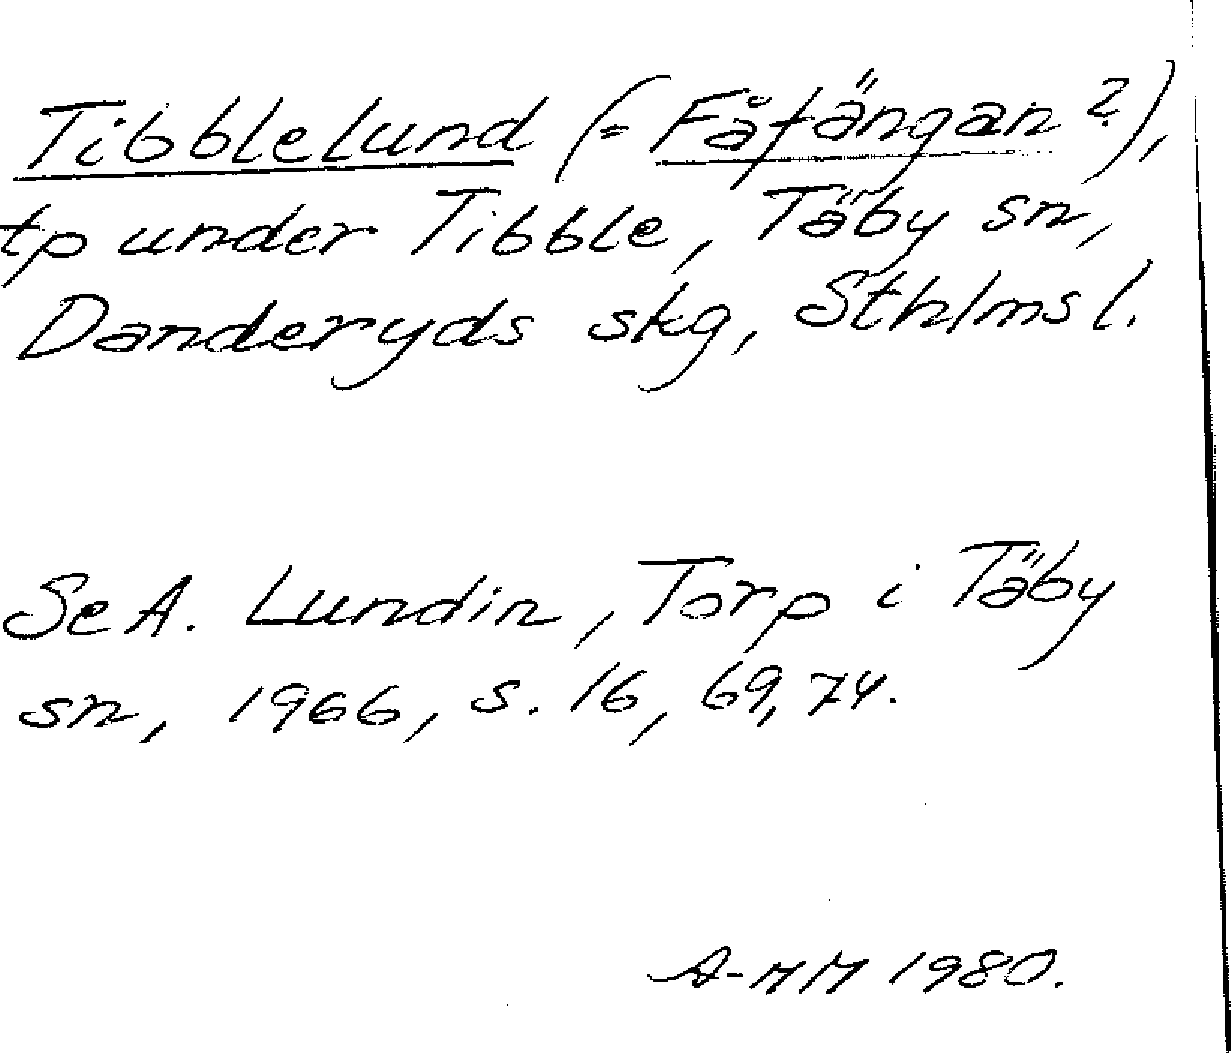 Tibblelund (= Fåfängan?),
tp under Tibble, Täby sn,
Danderyds skg, Sthlms l.
Se A. Lundin, Torp i Täby
sn, 1966, s. 16, 69, 74.
A-MM 1980.